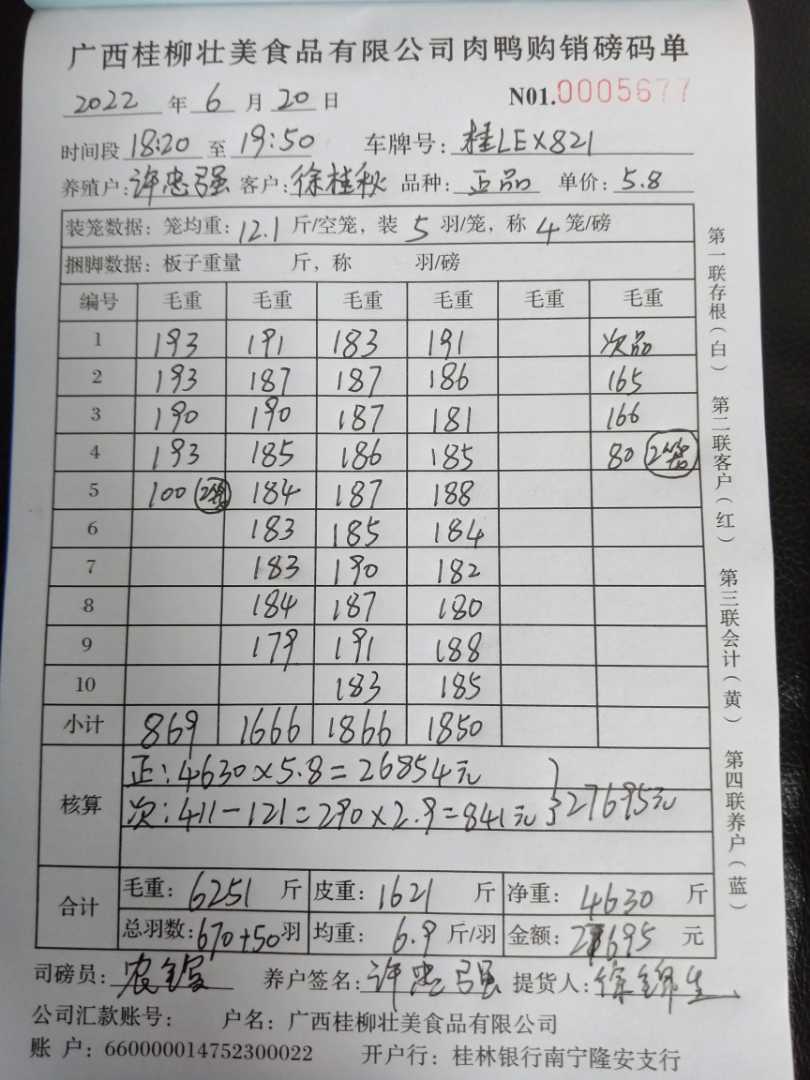 广西桂柳壮美食品有限公司肉鸭购销磅码单
2022 年 6 月 20 日 N01.0005677
时间段 18:20 至 19:50 车牌号: 桂LEX821
养殖户: 许忠强 客户: 徐桂秋 品种: 正品 单价: 5.8
装笼数据: 笼均重: 12.1 斤/空笼, 装 5 羽/笼, 称 4 笼/磅
捆脚数据: 板子重量 斤, 称 羽/磅
编号 毛重 毛重 毛重 毛重 毛重 毛重
1 193 191 183 191 次品
2 193 187 187 186 165
3 190 190 187 181 166
4 193 185 186 185 80 2笼
5 100 2笼 184 187 188
6 183 185 184
7 183 190 182
8 184 187 180
9 179 191 188
10 183 185
小计 869 1666 1866 1850
核算 正: 4630×5.8=26854元
次: 411-121=290×2.9=841元 } 27695元
合计 毛重: 6251 斤 皮重: 1621 斤 净重: 4630 斤
总羽数: 670+50 羽 均重: 6.9 斤/羽 金额: 27695 元
司磅员: 养户签名: 许忠强 提货人: 徐锦生
公司汇款账号: 户名: 广西桂柳壮美食品有限公司
账 户: 660000014752300022 开户行: 桂林银行南宁隆安支行
第一联存根(白) 第二联客户(红) 第三联会计(黄) 第四联养户(蓝)